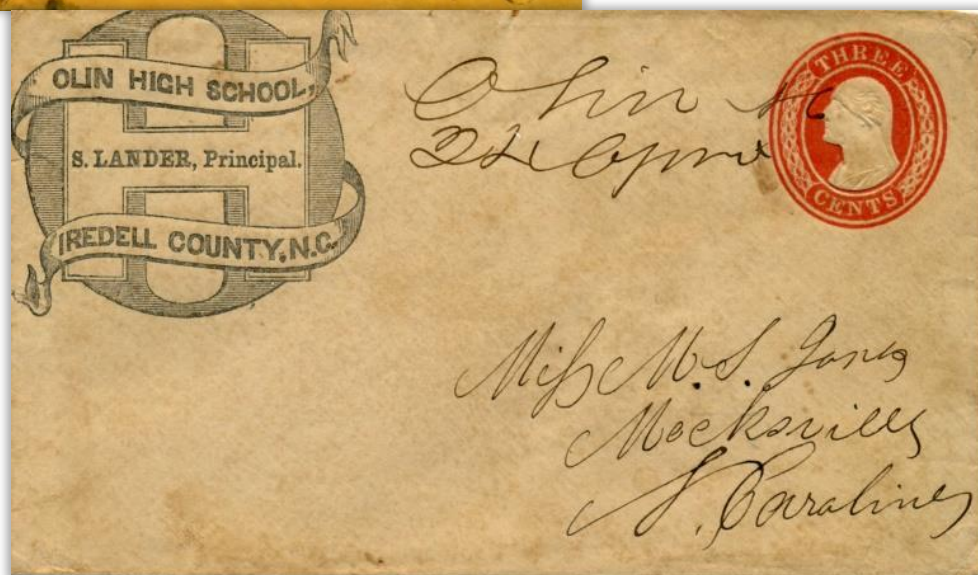 OLIN HIGH SCHOOL,
S. LANDER, Principal.
IREDELL COUNTY, N.C.
Olin
THREE
CENTS
Miſs M. S. Jones
Mocksville
N. Carolina